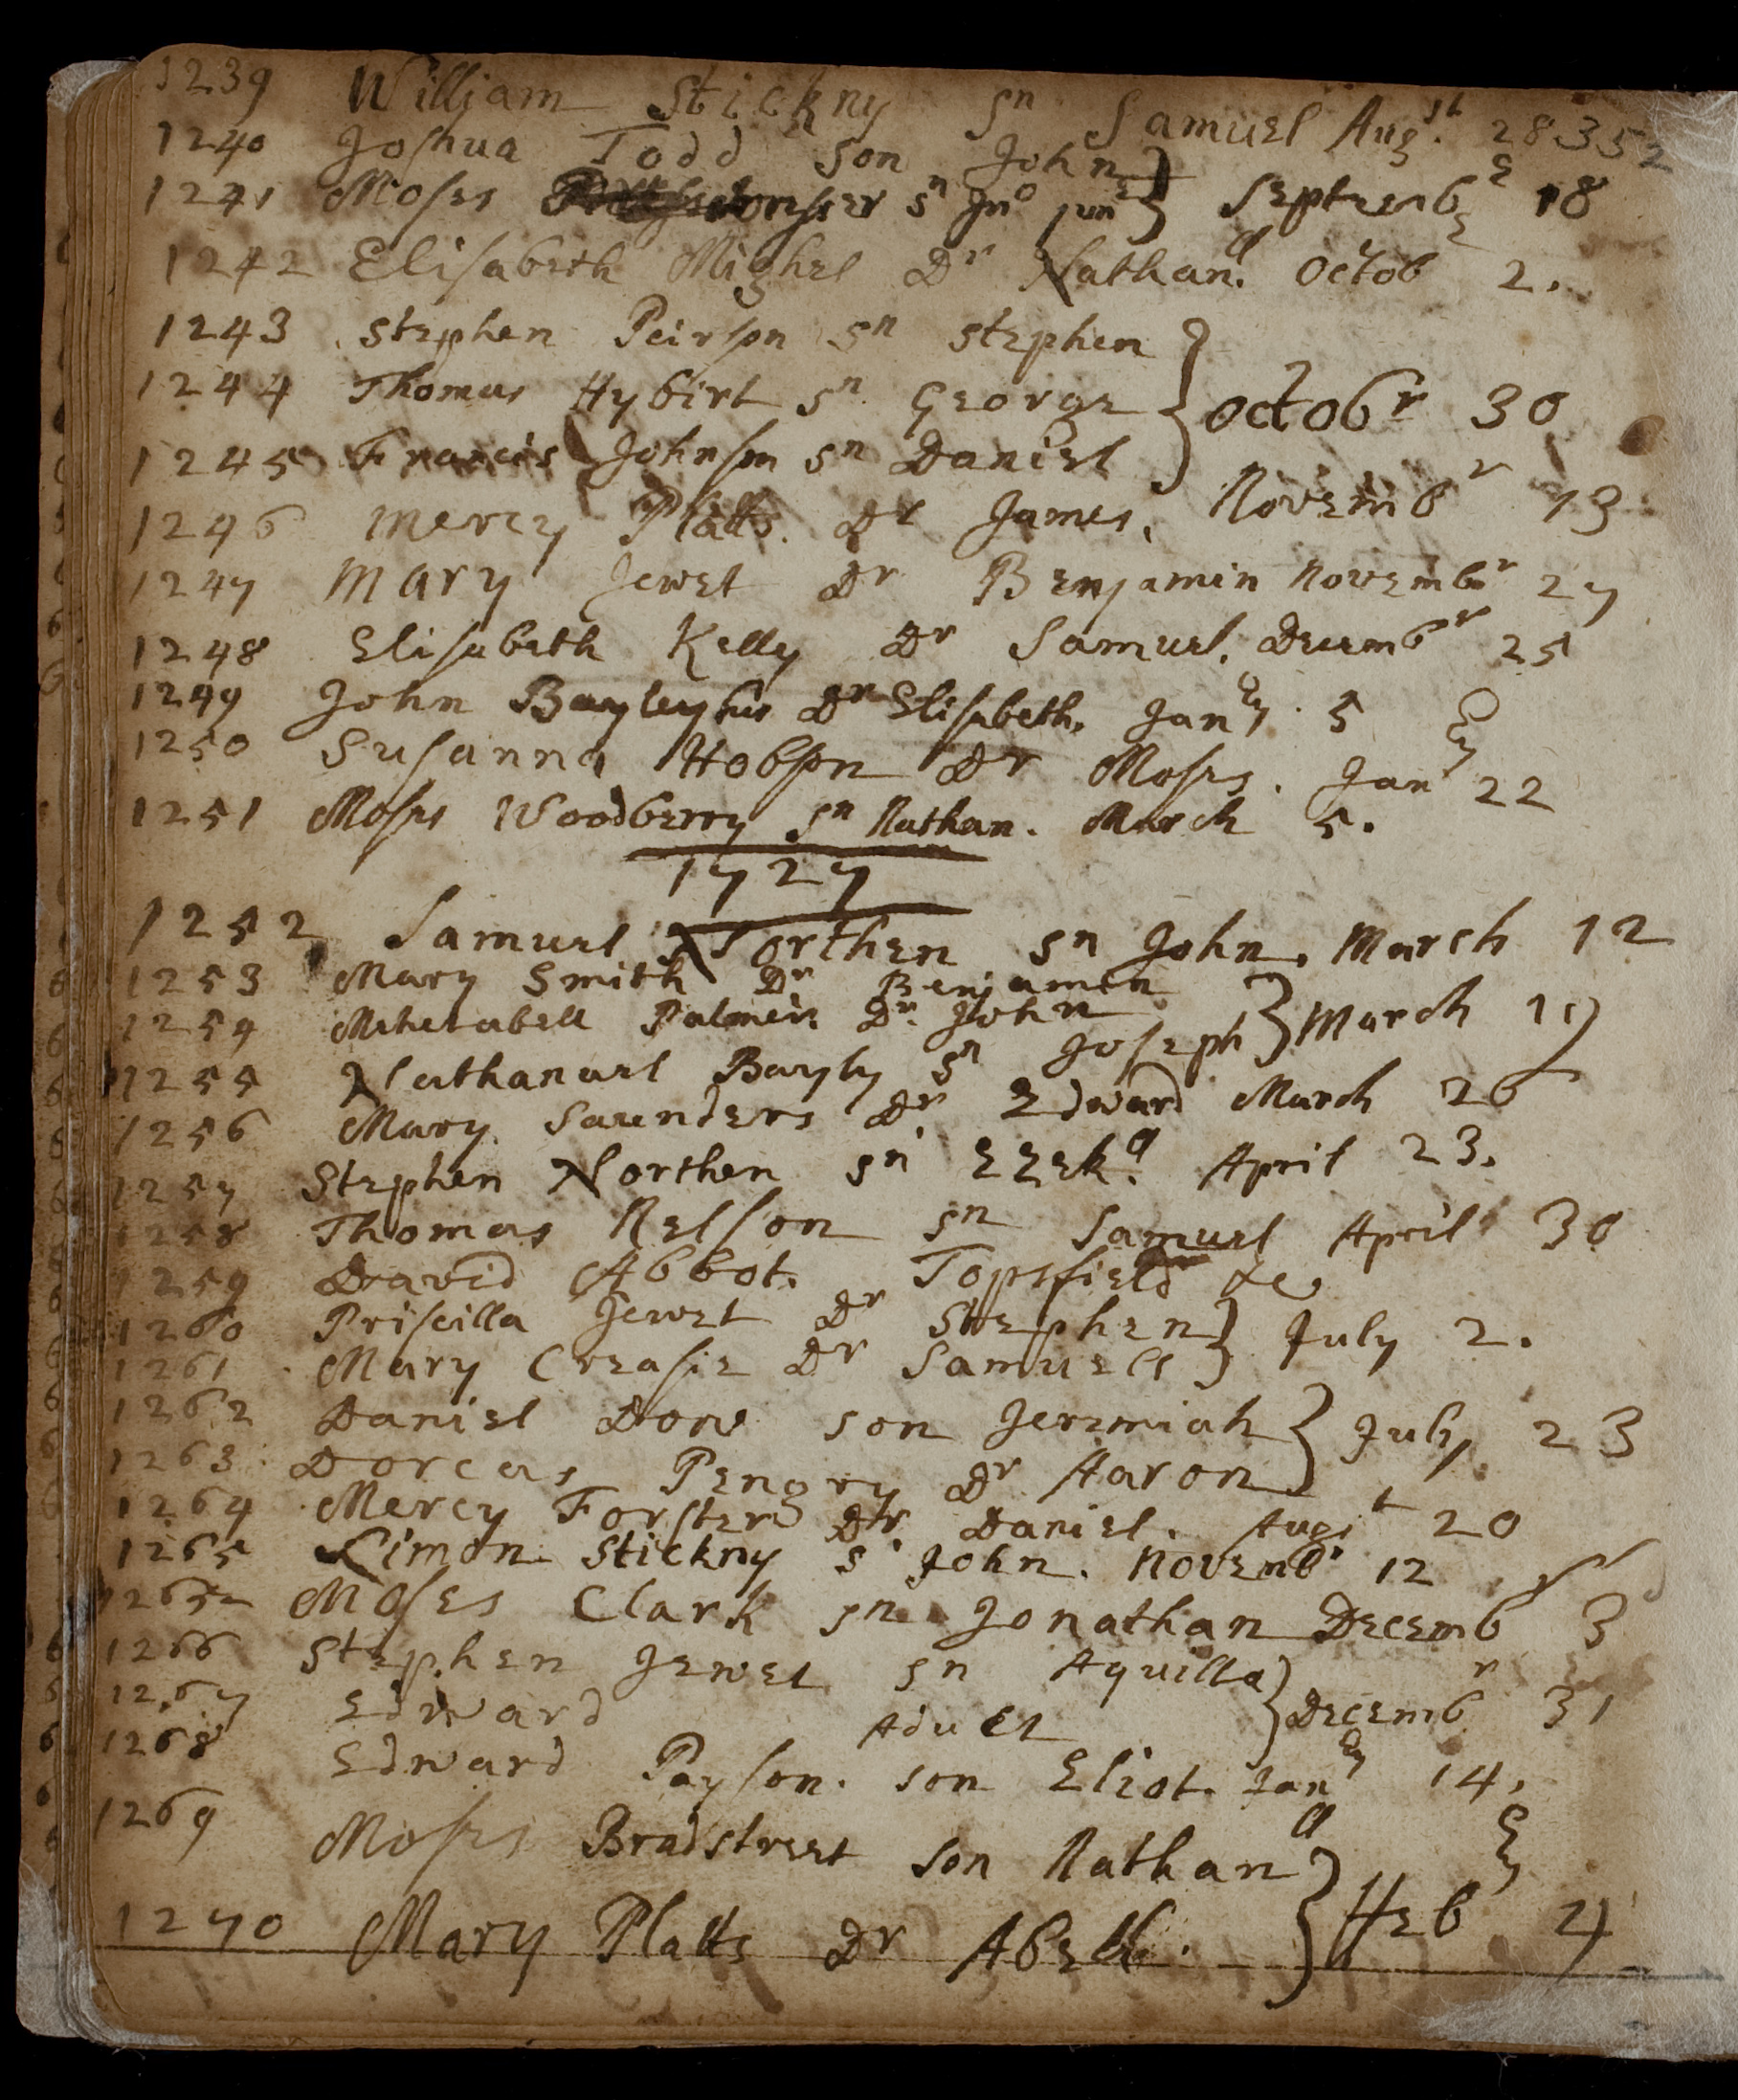 1239 William Stickny sn Samuel Augst. 28 352
1240 Joshua Todd son John }
1241 Moses sn Jno junr } Septemb 18
1242 Elisabeth Mighel Dr Nathanll. Octob 2.
1243 Stephen Peirson sn Stephen }
1244 Thomas Hybirt sn George } Octobr 30
1245 Francis Johnson sn Daniel }
1246 Mercy Platts. Dr James, Novembr 13
1247 Mary Jewet Dr Benjamin Novembr 27
1248 Elisabeth Kelly Dr Samuel. Decembr 25
1249 John Bayley his Dr Elisabeth. Janry 5
1250 Susanna Hobson Dr Moses. Janry 22
1251 Moses Woodberry sn Nathan. March 5.
1727
1252 Samuel Northen sn John. March 12
1253 Mary Smith Dr Benjamin }
1254 Mehetabell Palmer Dr. John } March 19
1255 Nathanael Bayly sn Joseph }
1256 Mary Saunders Dr. Edward March 26
1257 Stephen Northen sn Ezekll. April 23.
1258 Thomas Nelson sn Samuel April 30
1259 David Abbot. Topsfield &c
1260 Priscilla Jewet Dr Stephen } July 2.
1261 Mary Creasie Dr Samuels }
1262 Daniel Dow son Jeremiah } July 23
1263 Dorcas Pengry Dr Aaron }
1264 Mercy Forster Dtr. Daniel. Augst 20
1265 Simon Stickny s John. Novembr 12
12652 Moses Clark sn Jonathan Decembr 3
1266 Stephen Jewet sn Aquilla }
1267 Edward Adult } Decembr 31
1268 Edward Payson. son Eliot. Janry 14.
1269 Moses Bradstreet son Nathanll }
1270 Mary Platts Dr Abell. } Febry 4